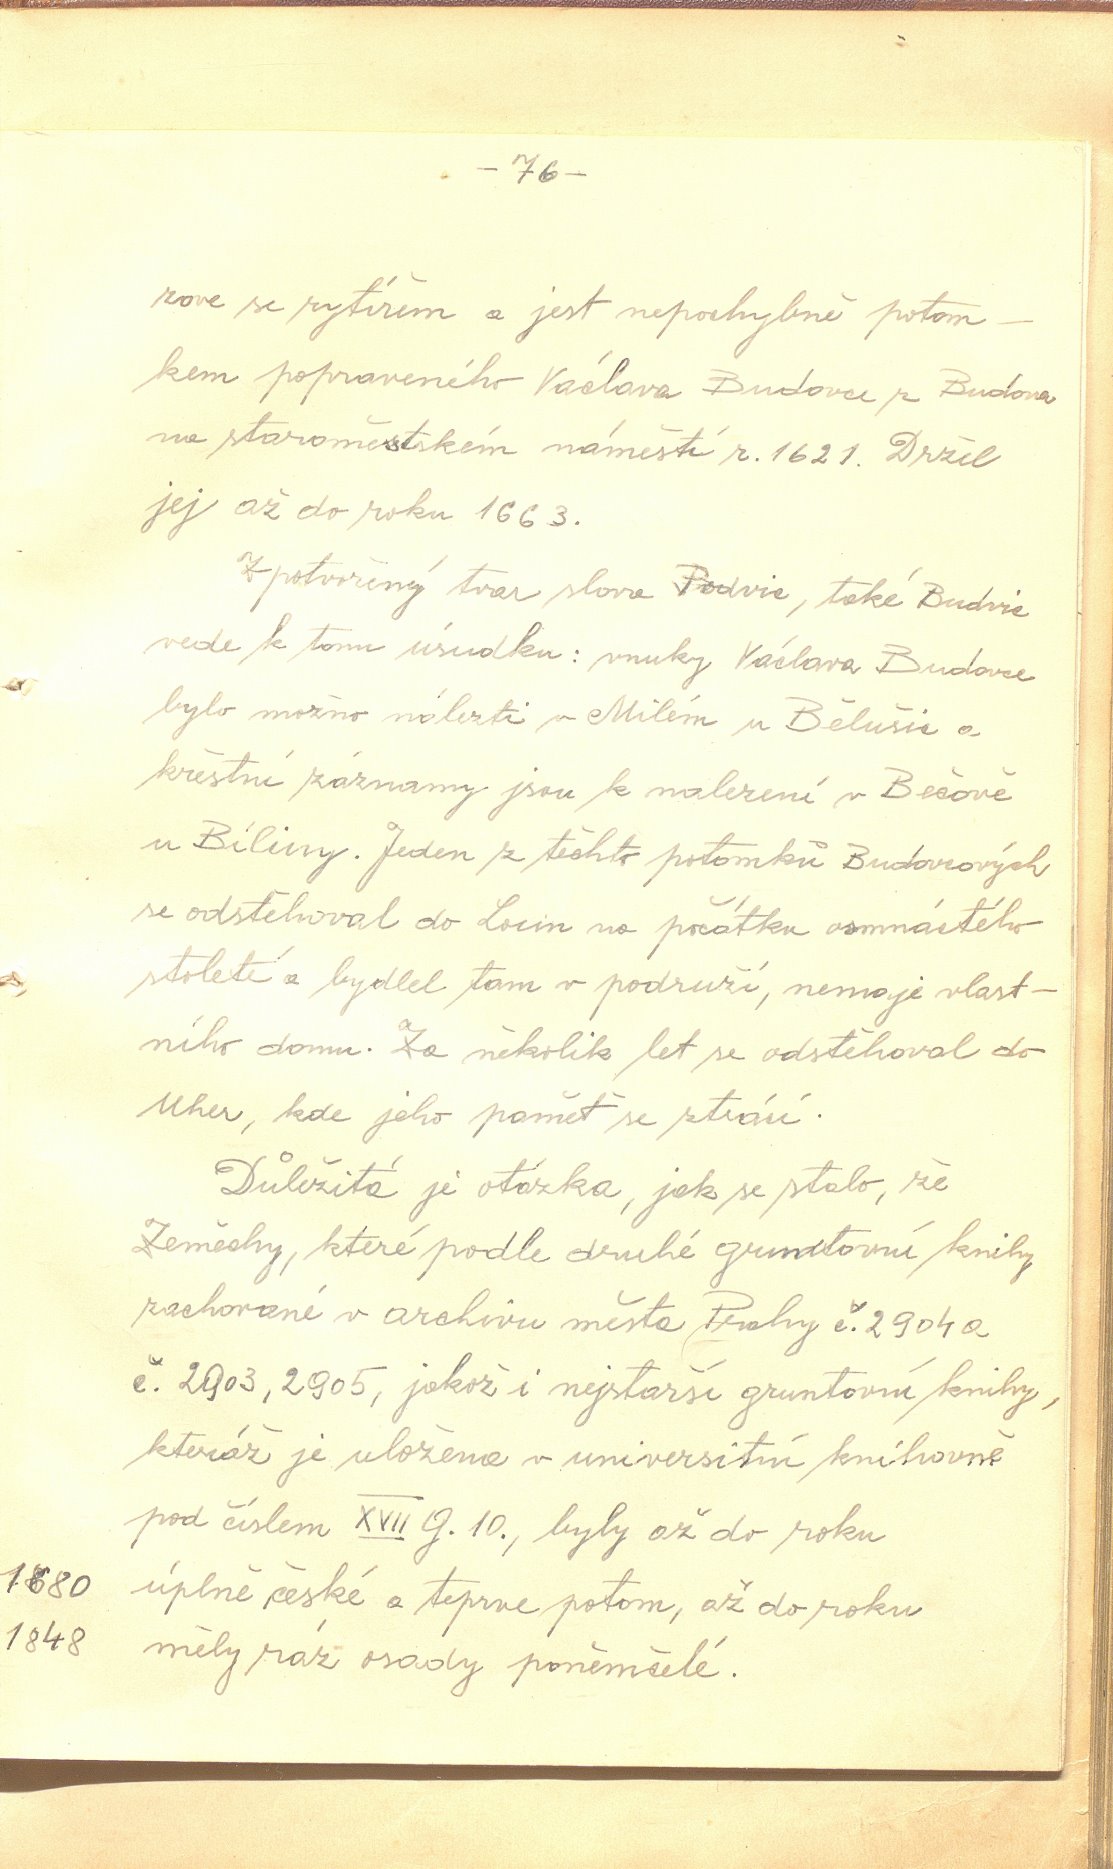 - 76 -
zove se rytířem a jest nepochybně potom-
kem popraveného Václava Budovce z Budova
na staroměstském náměstí r. 1621. Držel
jej až do roku 1663.
Zpotvořený tvar slova Podvic, také Budvic
vede k tomu úsudku: vnuky Václava Budovce
bylo možno nalezti v Milém u Bělušic a
křestní záznamy jsou k nalezení v Bečově
u Bíliny. Jeden z těchto potomků Budovcových
se odstěhoval do Loun na počátku osmnáctého
století a bydlel tam v podruží, nemaje vlast-
ního domu. Za několik let se odstěhoval do
Uher, kde jeho paměť se ztrácí.
Důležitá je otázka, jak se stalo, že
Zeměchy, které podle druhé gruntovní knihy
zachované v archivu města Prahy č. 2904 a
č. 2903, 2905, jakož i nejstarší gruntovní knihy,
kteráž je uložena v universitní knihovně
pod číslem XVII G. 10., byly až do roku
1680 úplně české a teprve potom, až do roku
1848 měly ráz osady poněmčelé.